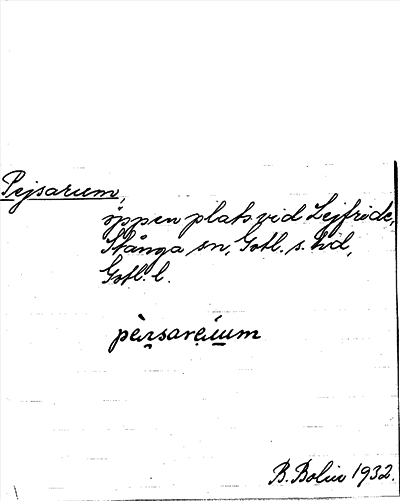 Pejsarum,
öppen plats vid Lejfride,
Stånga sn, Gotl. s. hd,
Gotl. l.
B. Bolin 1932.